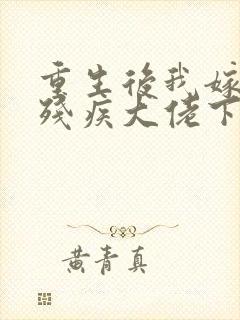 重生後我嫁
殘疾大佬下
黃青真